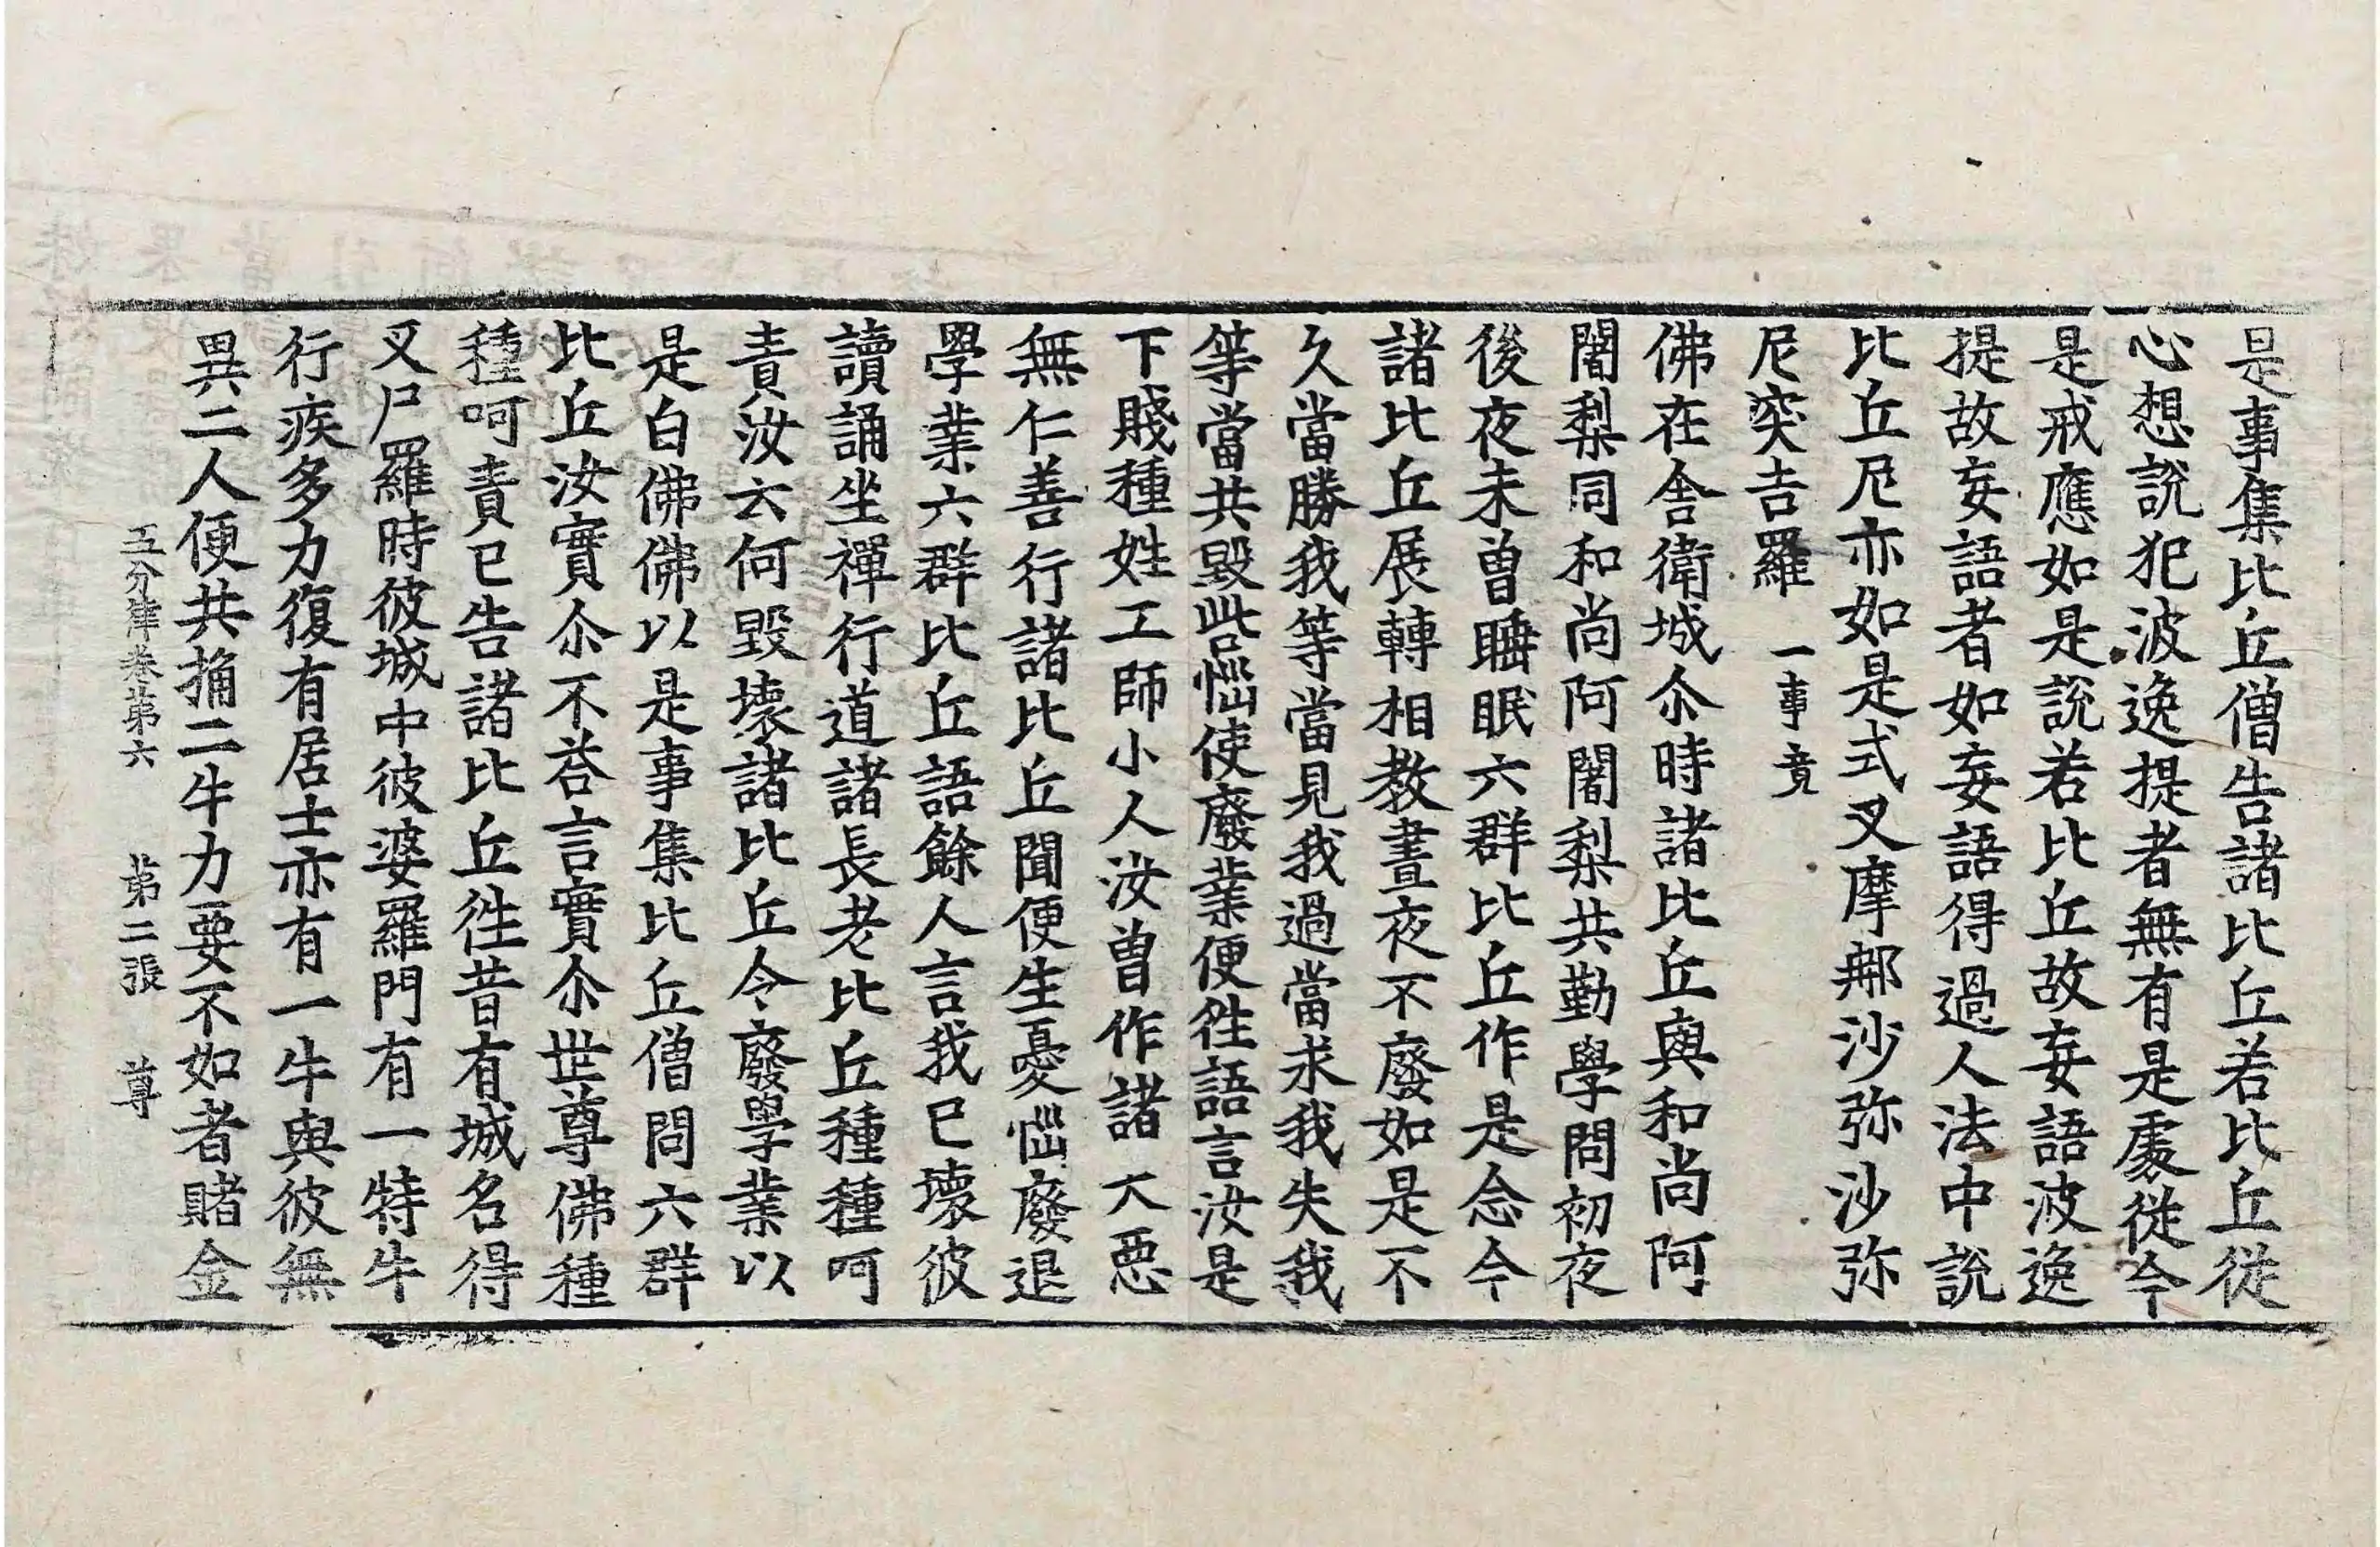 是事集比丘僧告諸比丘若比丘從
心想說犯波逸提者無有是處從今
是戒應如是說若比丘故妄語波逸
提故妄語者如妄語得過人法中說
比丘尼亦如是式叉摩那沙弥沙弥
尼突吉羅 一事竟
佛在舍衛城尒時諸比丘與和尚阿
闍梨同和尚阿闍梨共勤學問初夜
後夜未曽睡眠六群比丘作是念今
諸比丘展轉相教晝夜不廢如是不
久當勝我等當見我過當求我失我
等當共毀呰惱使廢業便徃語言汝是
下賤種姓工師小人汝曽作諸大惡
無仁善行諸比丘聞便生憂惱廢退
學業六群比丘語餘人言我已壞彼
讀誦坐禪行道諸長老比丘種種呵
責汝云何毀壞諸比丘令廢學業以
是白佛佛以是事集比丘僧問六群
比丘汝實尒不荅言實尒世尊佛種
種呵責已告諸比丘徃昔有城名得
叉尸羅時彼城中彼婆羅門有一特牛
行疾多力復有居士亦有一牛與彼無
異二人便共捔二牛力要不如者賭金
五分律卷第六 第二張 尊